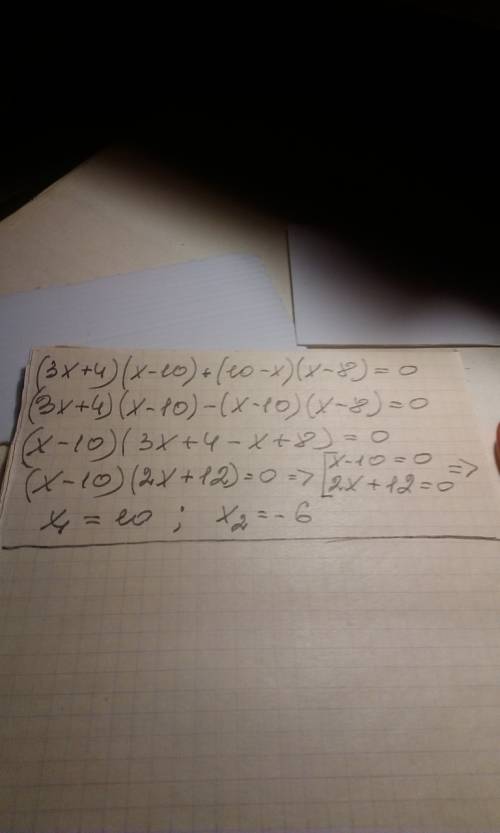 (3x+4)(x-10)+(10-x)(x-8)=0
(3x+4)(x-10)-(x-10)(x-8)=0
(x-10)(3x+4-x+8)=0
(x-10)(2x+12)=0 => [x-10=0
2x+12=0 =>
x₁=10; x₂=-6